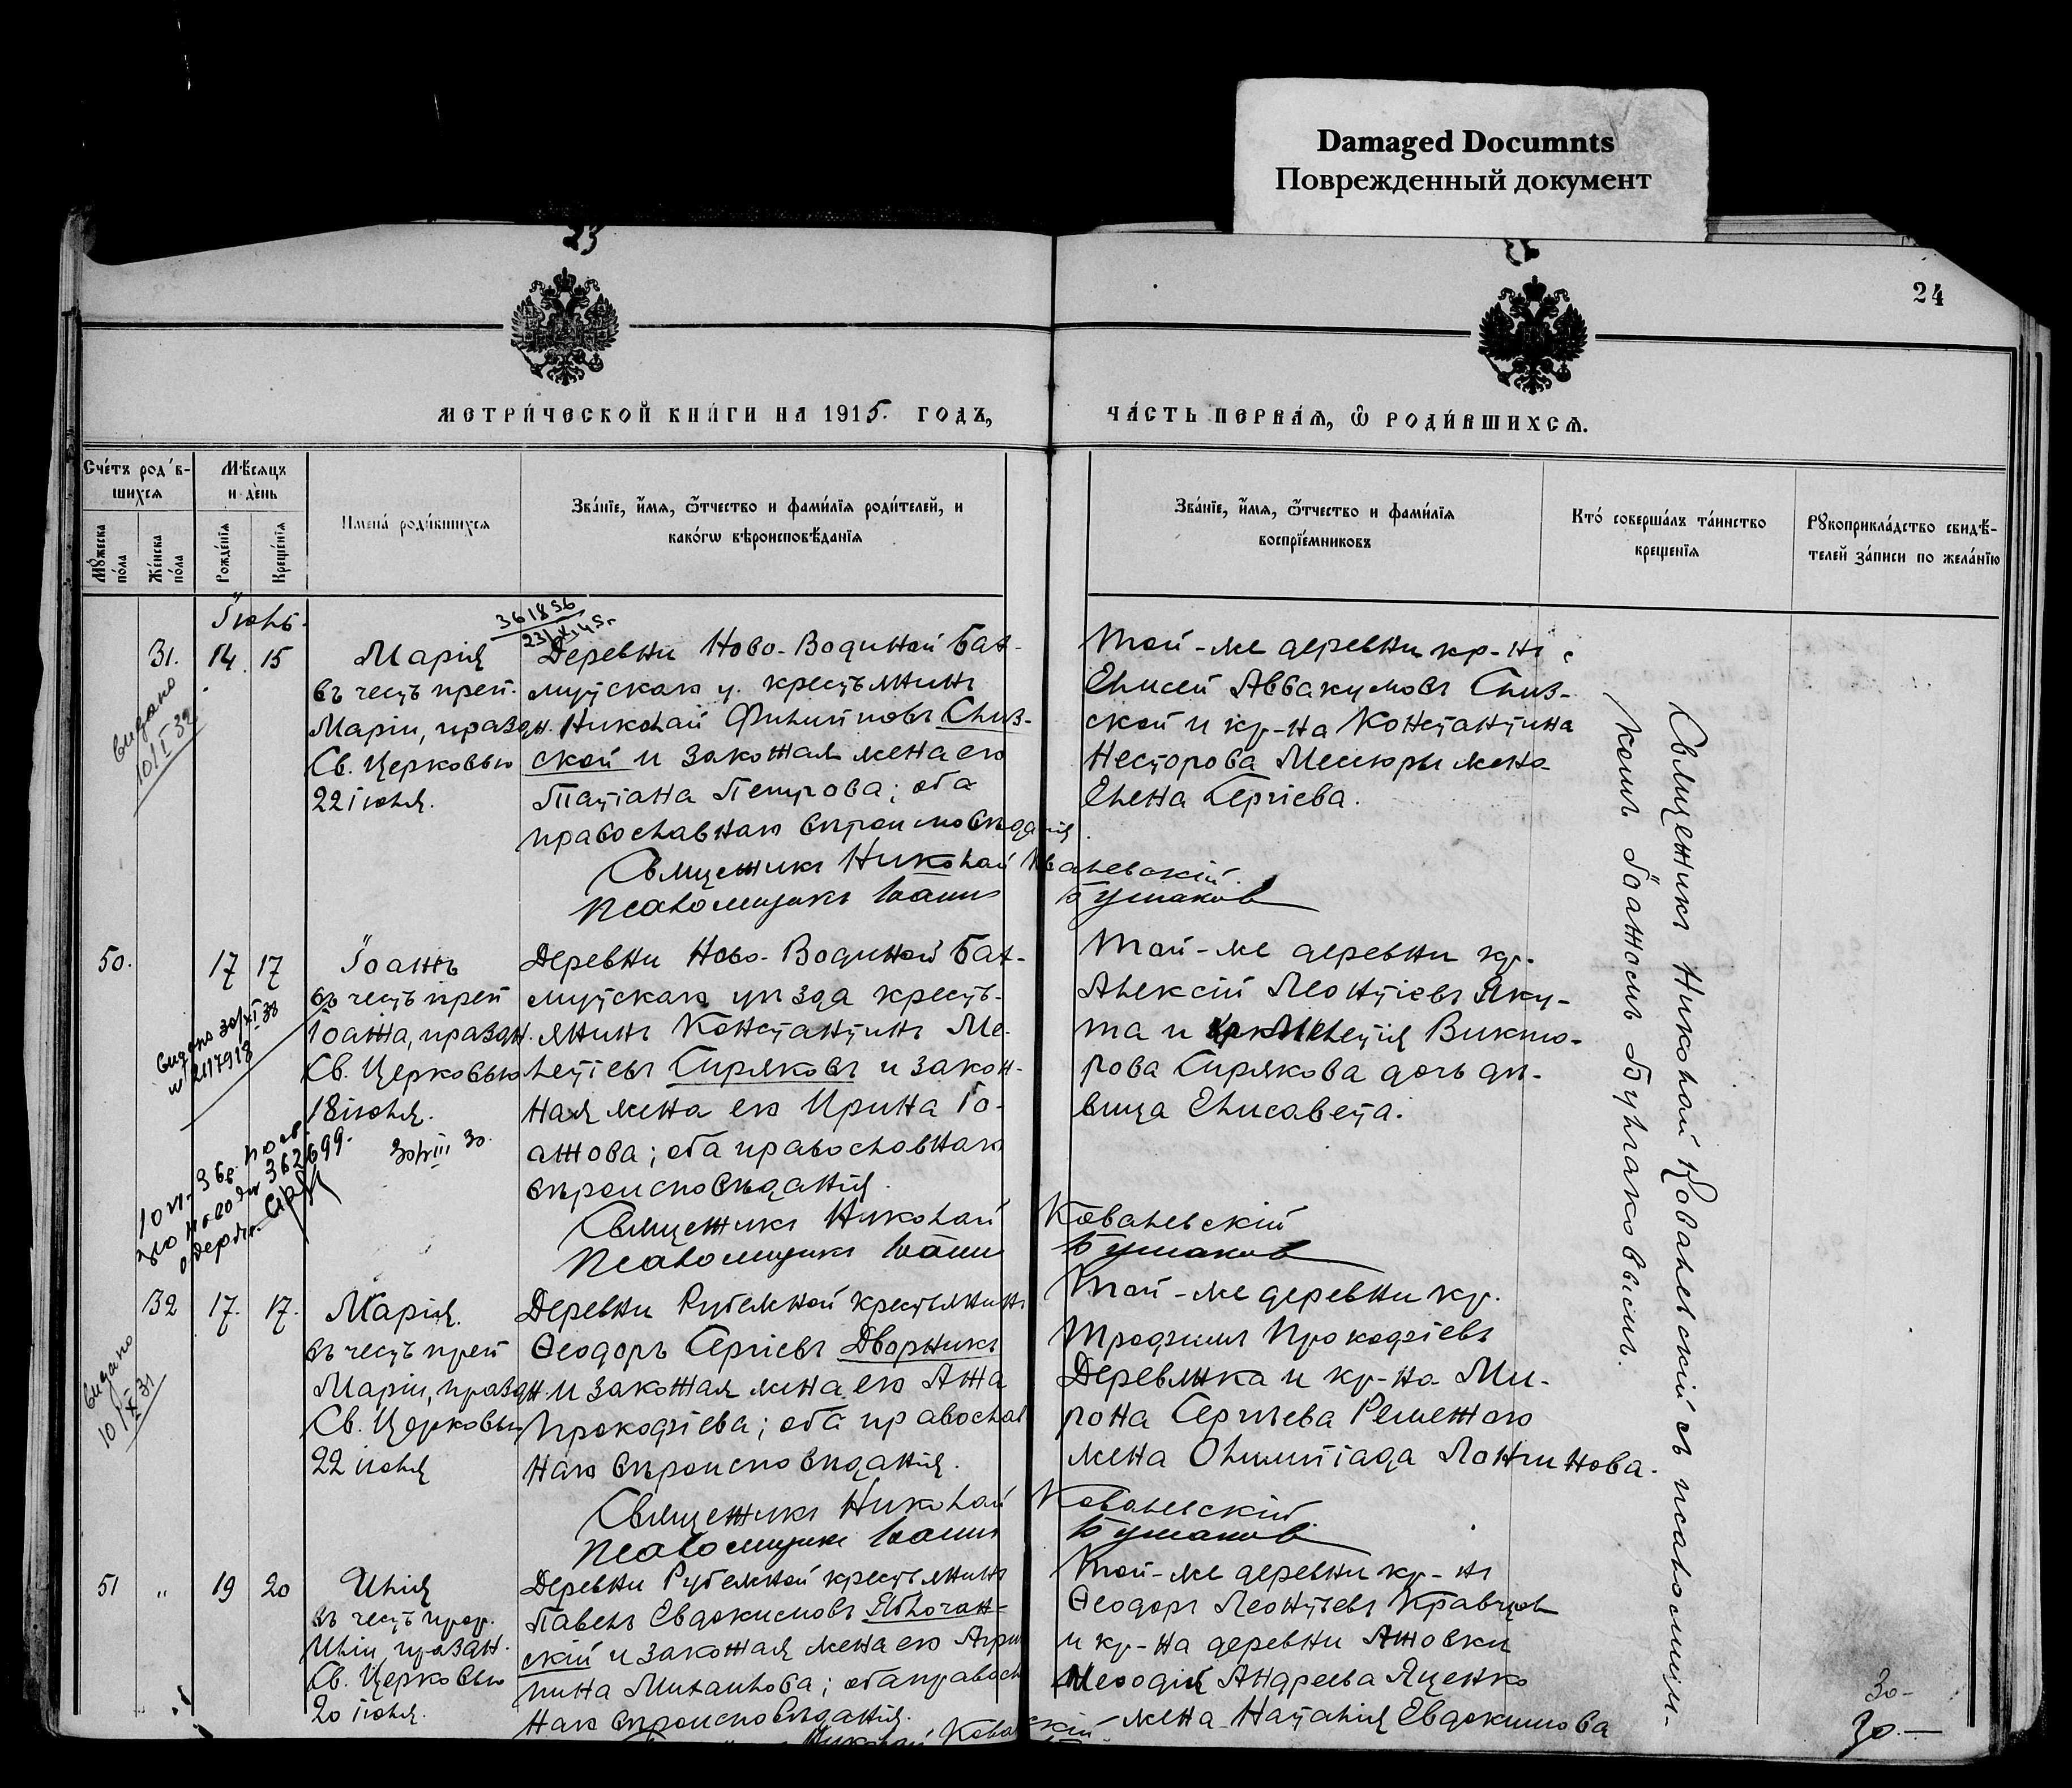 Damaged Documnts
Поврежденный документ
23
24
МЕТРИЧЕСКОЙ КНИГИ НА 1915. ГОДЪ,
ЧАСТЬ ПЕРВАЯ, Ѡ РОДИВШИХСЯ.
Счетъ родившихся
Мужеска пола
Женска пола
Мѣсяцъ и день
Рожденія
Крещенія
Имена родившихся
Званіе, имя, ѿчество и фамилія родителей, и
какогѡ вѣроисповѣданія
Званіе, имя, ѿчество и фамилія
воспріемниковъ
Кто совершалъ таинство
крещенія
Рукоприкладство свидѣ-
телей записи по желанію
Іюнь.
361856
31. 14 15
Марія
въ честь преп.
Маріи, праздн.
Св. Церковью
22 іюля.
видано
10/I 32
Деревни Ново-Водяной Бах-
мутскаго у. крестьянинъ
Николай Филипповъ Слиз-
ской и законная жена его
Татіана Петрова; оба
православнаго вѣроисповѣданія.
Священникъ Николай Ковалевскій.
Псаломщикъ Іоаннъ Булгаков
Той-же деревни кр-нъ
Елисей Аввакумовъ Слиз-
ской и кр-на Константина
Несторова Мешюры жена
Елена Сергіева.
50. 17 17
Іоаннъ
въ честь преп
Іоанна, праздн.
Св. Церковью
18 іюля.
30/VIII 30.
видано 30/XI 38
Деревни Ново-Водяной Бах-
мутскаго уѣзда кресть-
янинъ Константинъ Ме-
летіевъ Сиряковъ и закон-
ная жена его Ирина Іо-
аннова; оба православнаго
вѣроисповѣданія.
Священникъ Николай Ковалевскій
Псаломщикъ Іоаннъ Булгаков
Той-же деревни кр.
Алексій Леонтіевъ Яку-
та и Мелетія Викто-
рова Сирякова дочь дѣ-
вица Елисавета.
32 17. 17.
Марія.
въ честь преп
Маріи, праздн.
Св. Церковью
22 іюля
видано
10/X 31
Деревни Рубежной крестьянинъ
Ѳеодоръ Сергіевъ Дворникъ
и законная жена его Анна
Прокофіева; оба православ
наго вѣроисповѣданія.
Священникъ Николай Ковалевскій
Псаломщикъ Іоаннъ Булгаков
Той-же деревни кр.
Трофимъ Прокофіевъ
Деревянка и кр-на Ми-
рона Сергіева Решетного
жена Олимпіада Лонгинова.
51 " 19 20
Илія
въ честь прор.
Иліи праздн.
Св. Церковью
20 іюля.
Деревни Рубежной крестьянинъ
Павелъ Евдокимовъ Яблочан-
скій и законная жена его Агрип
пина Михаилова; оба правосл
наго вѣроисповѣданія.
Николай Ковалевскій
Той-же деревни кр-нъ
Ѳеодоръ Леонтьевъ Кравцов
и кр-на деревни Анновки
Меѳодія Андреева Яценко
жена Наталія Евдокимова
Священникъ Николай Ковалевскій съ псаломщи-
комъ Іоанномъ Булгаковымъ.
30-
30.-